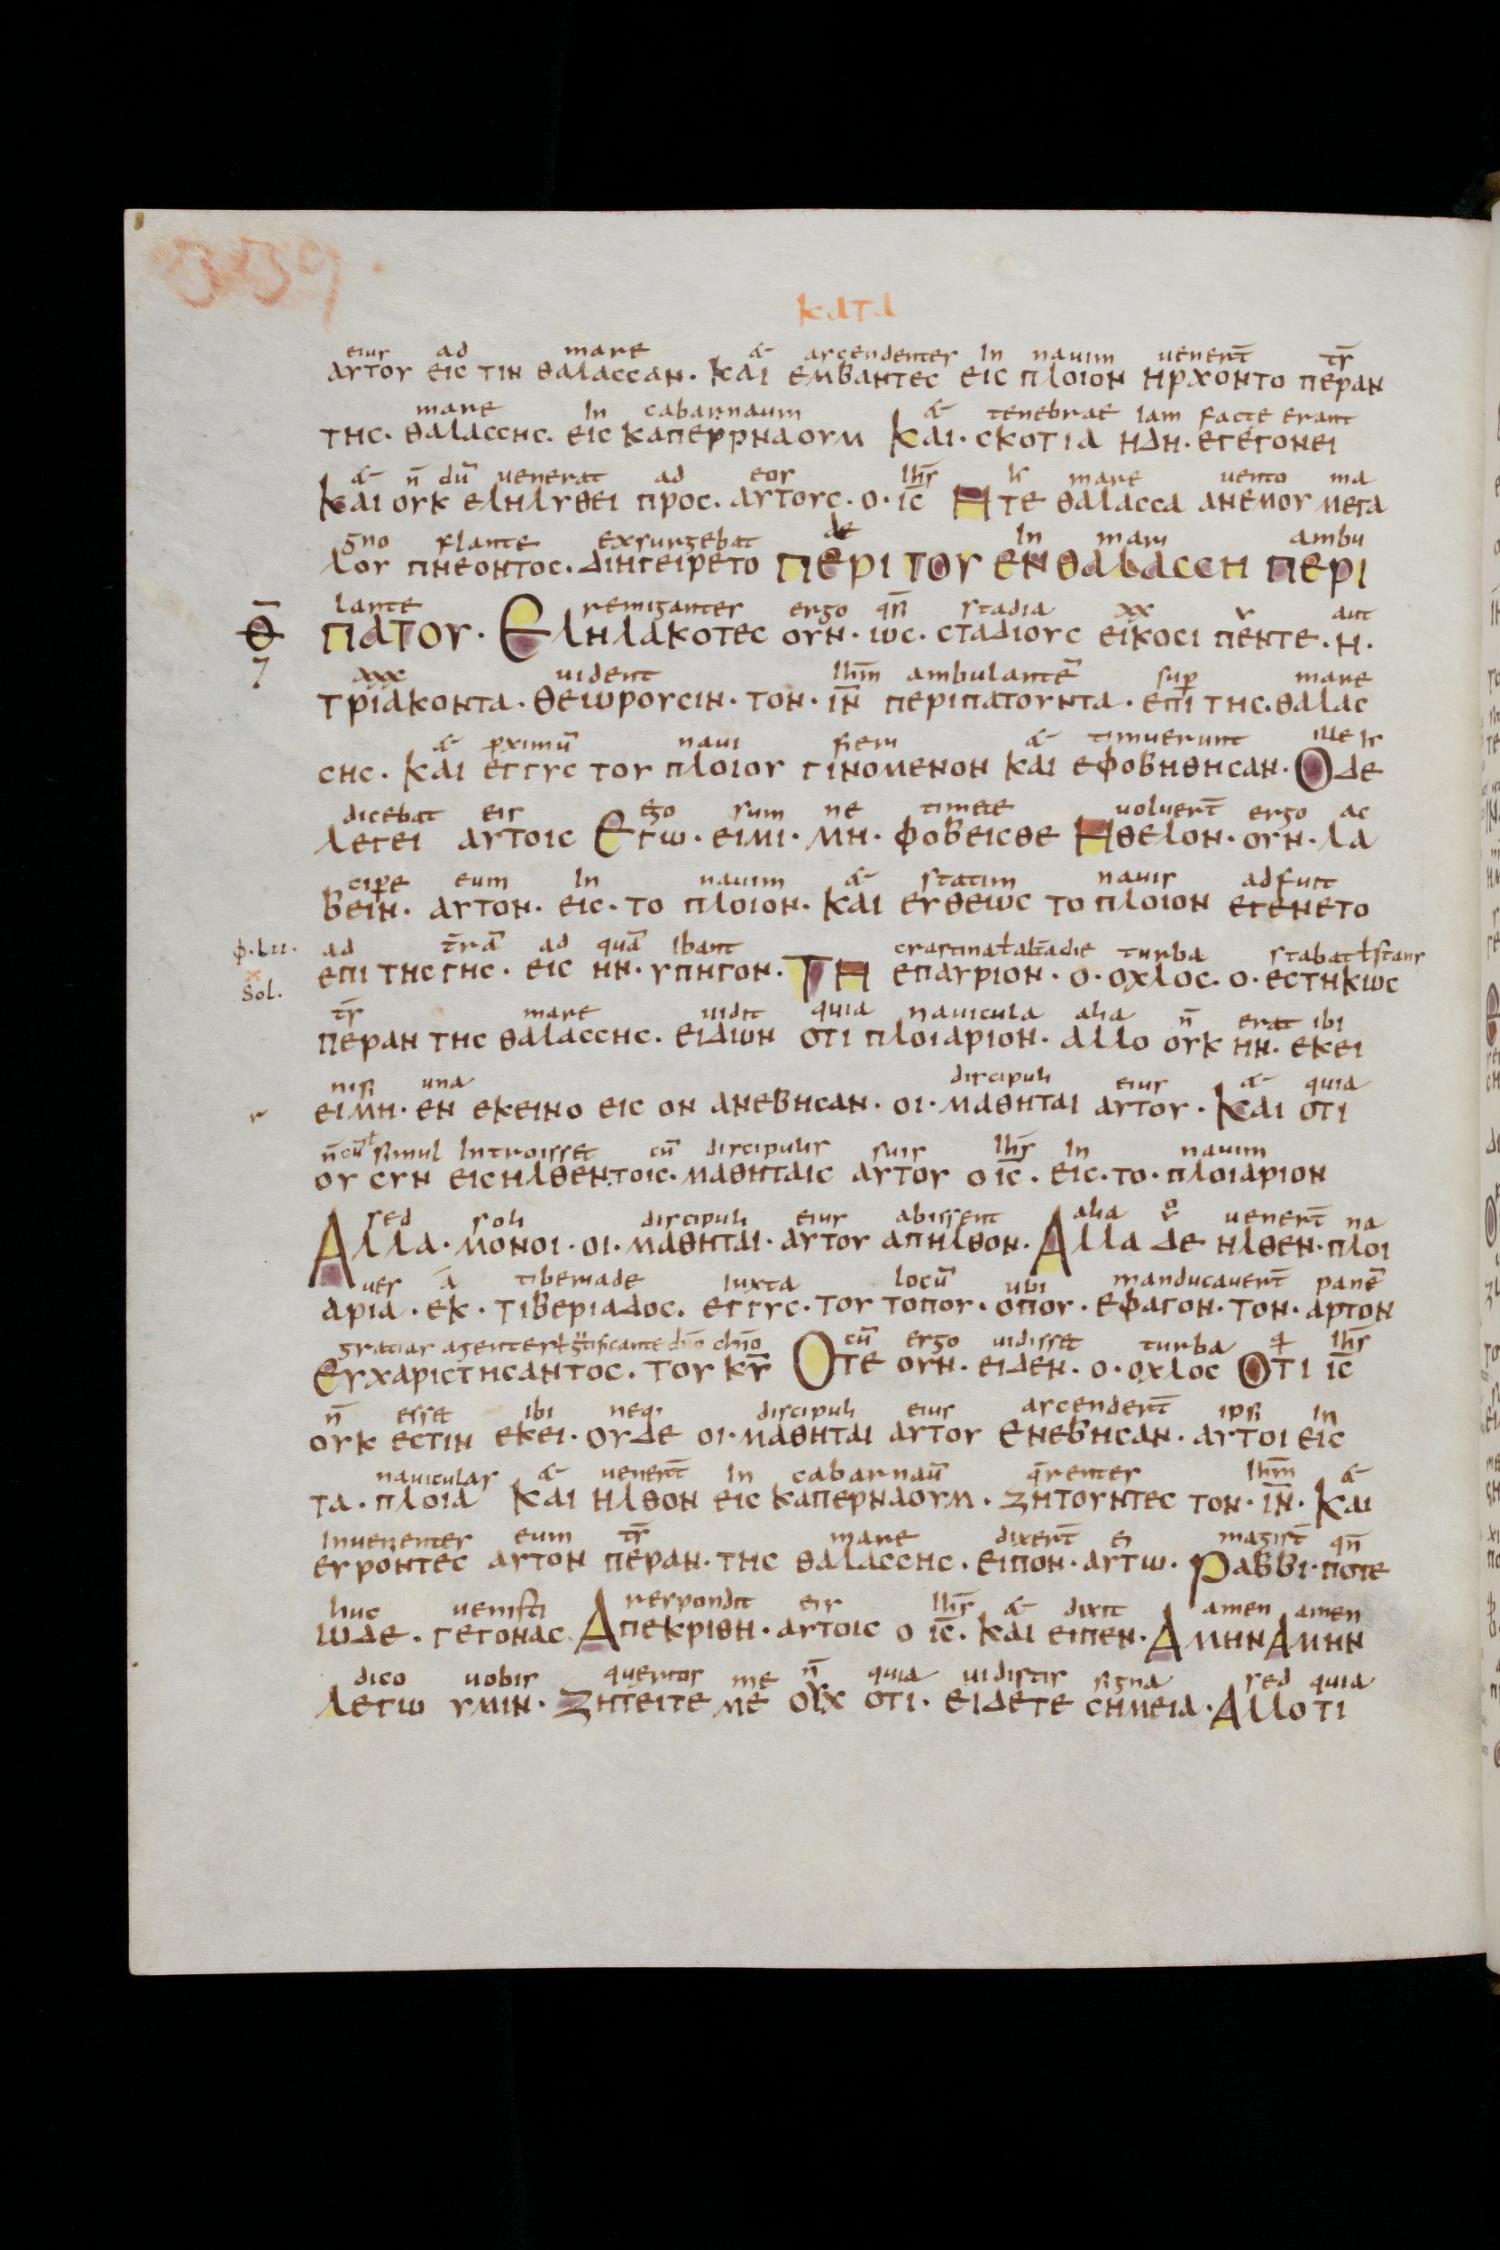 339.
κατα
eius ad mare & ascendentes in nauim uenert̄ tr̄
αυτου εις τιν θαλασσαν· και εμβαντες εις πλοιον ηρχοντο περαν
mare in cabarnaum & tenebrae iam facte erant
της· θαλασσης· εις καπερρναουμ και· σκοτια ηδη· εγεγονει
& n̄ dū uenerat ad eos ihs̄ mare uento ma
και ουκ εληλυθει προς· αυτους· ο· ις̄ ητε θαλασσα ανεμου μεγα
gno flante exsurgebat de in mari ambu
λου πνεοντος· διηγειρετο περι του εν θαλασση περι
lante remigantes ergo qn̄ stadia xx v aut
πατου· εληλακοτες ουν· ως· σταδιους εικοσι πεντε· η·
xxx uident ihm̄ ambulantē sup mare
τριακοντα· θεωρουσιν· τον· ιν̄ περιπατουντα· επι της· θαλασ
& pximū naui fieri & timuerunt ille
σης· και εγγυς του πλοιου γινομενον και εφοβηθησαν· οδε
dicebat eis ego sum ne timete uoluert̄ ergo ac
λεγει αυτοις εγω· ειμι· μη· φοβεισθε ηθελον· ουν· λα
cipe eum in nauim & statim nauis adfuit
βειν· αυτον· εις· το πλοιον· και ευθεως το πλοιον εγενετο
ad t̄rā ad quā ibant crastina ł altādie turba stabat ł stans
επι της γης· εις ην· υπηγον· τη επαυριον· ο· οχλος· ο· εστηκως
sol.
tr̄ mare uidit quia nauicula alia n̄ erat ibi
περαν της θαλασσης· ειδιων οτι πλοιαριον· αλλο ουκ ην· εκει
nisi una discipuli eius & quia
ειμη· εν εκεινο εις ον ανεβησαν· οι· μαθηται αυτου· και οτι
n̄ cū ł simul introisset cū discipulis suis ihs̄ in nauim
ου συν εισηλθεν·τοις· μαθηταις αυτου ο ις̄· εις· το· πλοιαριον
sed soli discipuli eius abissent alia uenert̄ na
αλλα· μονοι· οι· μαθηται· αυτου απηλθον· αλλα δε ηλθεν· πλοι
ues ā tiberiade iuxta locū ubi manducauert̄ panē
αρια· εκ· τιβεριαδος· εγγυς· του τοπου· οπου· εφαγον· τον· αρτον
gratias agentes cū ergo uidisset turba ihs̄
ευχαριστησαντος· του κῡ οτε ουν· ειδεν· ο· οχλος οτι ις̄
n̄ esset ibi neq; discipuli eius ascendert̄ ipsi in
ουκ εστιν εκει· ουδε οι· μαθηται αυτου ενεβησαν· αυτοι εις
nauiculas & uenert̄ in cabarnaū q̄rentes ihm̄ &
τα· πλοια και ηλθον εις καπερναουμ· ζητουντες τον· ιν̄· και
inuenentes eum tr̄ mare dixert̄ ei magist̄ qn̄
ευροντες αυτον περαν· της θαλασσης· ειπον· αυτω· ραββι· ποτε
huc uenisti respondit eis ihs̄ & dixit amen amen
ωδε· γεγονας απεκριθη· αυτοις ο ις̄· και ειπεν· αμην αμην
dico uobis queritis me n̄ quia uidistis signa sed quia
λεγω υμιν· ζητειτε με ουχ οτι· ειδετε σημεια· αλλοτι